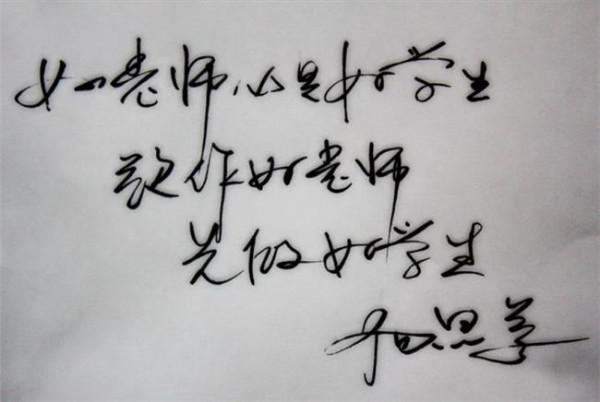 好老师必是好学生
欲作好老师
先做好学生